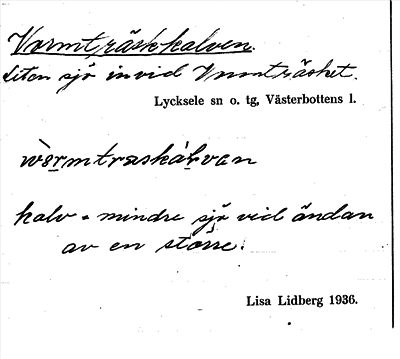 Vormträskkalven.
Liten sjö invid Vormträsket.
Lycksele sn o. tg, Västerbottens l.
kalv = mindre sjö vid ändan
av en större.
Lisa Lidberg 1936.